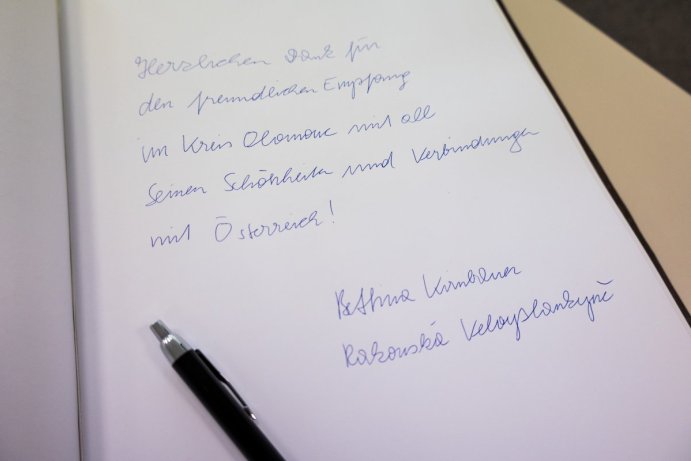 Herzlichen Dank für
den freundlichen Empfang
im Kreis Olomouc mit all
seinen Schönheiten und Verbindungen
mit Österreich!
Bettina Kirnbauer
Rakouská Velvyslankyně